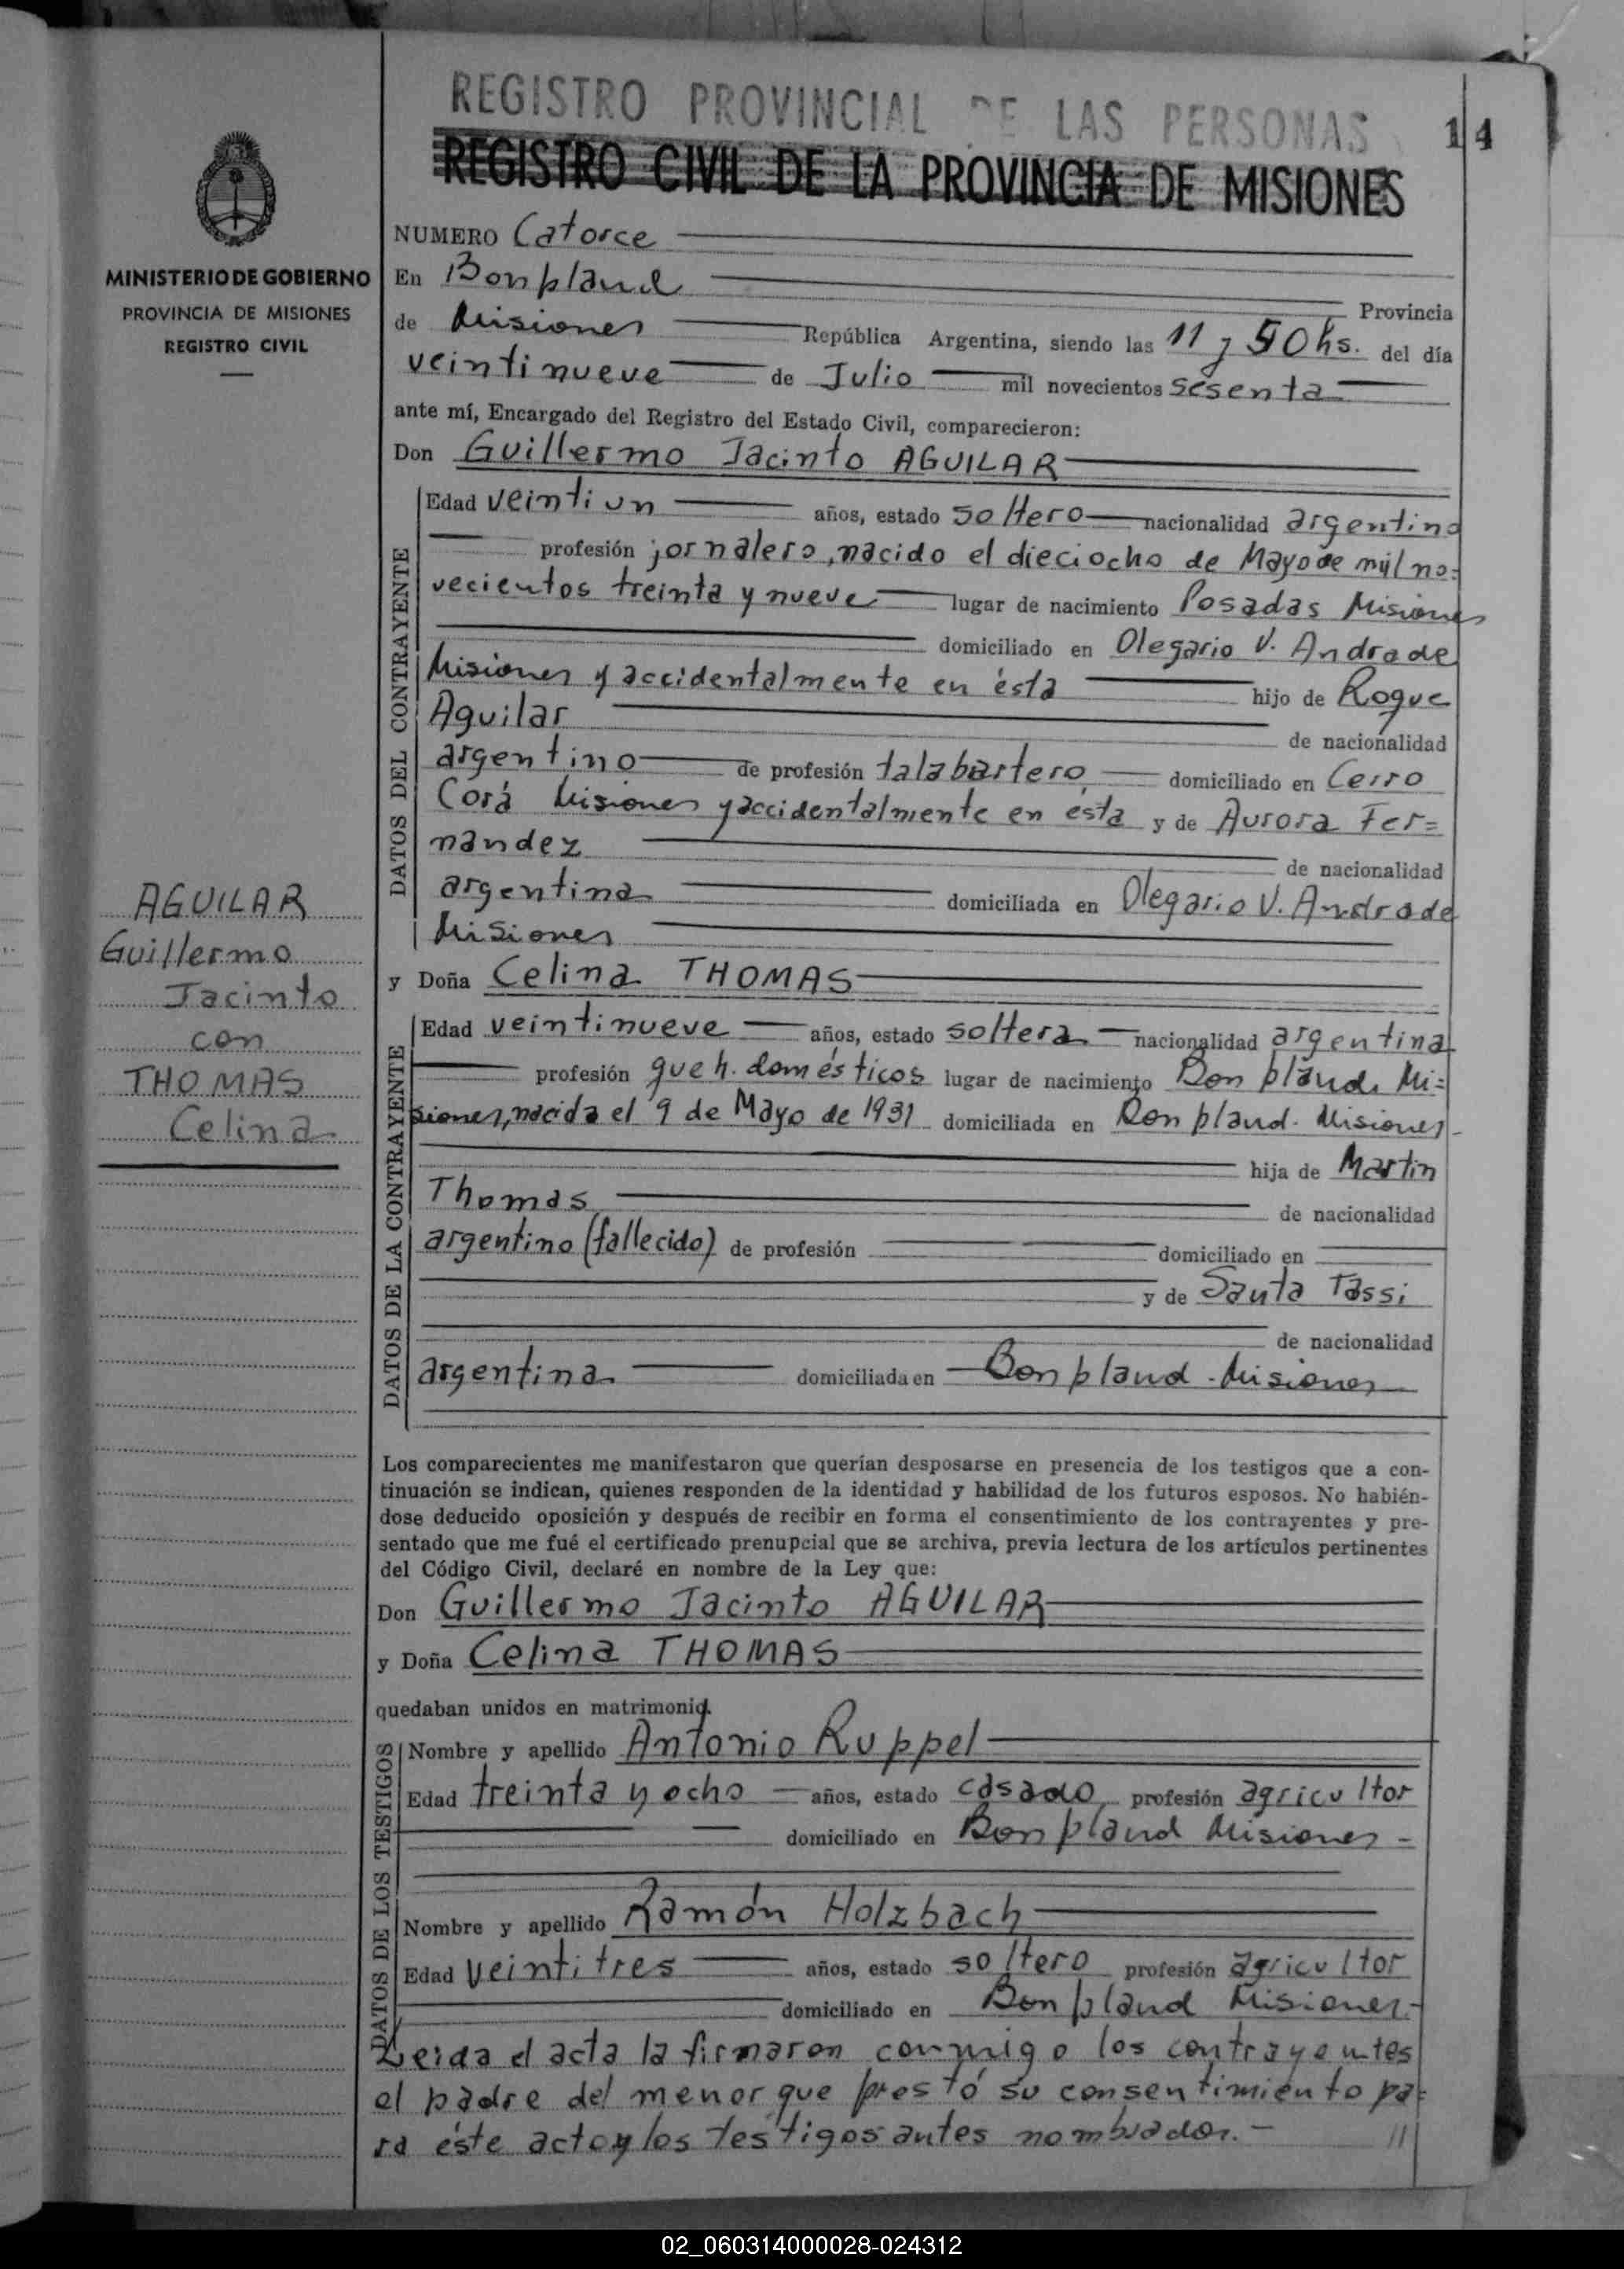 REGISTRO PROVINCIAL DE LAS PERSONAS
14
REGISTRO CIVIL DE LA PROVINCIA DE MISIONES
MINISTERIO DE GOBIERNO
PROVINCIA DE MISIONES
REGISTRO CIVIL
NUMERO Catorce
En Bonpland
Provincia
de Misiones República Argentina, siendo las 11 y 50 hs. del día
veintinueve de Julio mil novecientos sesenta
ante mí, Encargado del Registro del Estado Civil, comparecieron:
Don Guillermo Jacinto AGUILAR
DATOS DEL CONTRAYENTE
Edad veintiun años, estado soltero nacionalidad argentino
profesión jornalero, nacido el dieciocho de Mayo de mil no=
vecientos treinta y nueve lugar de nacimiento Posadas Misiones
domiciliado en Olegario V. Andrade
Misiones y accidentalmente en ésta hijo de Roque
Aguilar
de nacionalidad
argentino de profesión talabartero domiciliado en Cerro
Corá Misiones y accidentalmente en ésta y de Aurora Fer=
nandez
de nacionalidad
argentina domiciliada en Olegario V. Andrade
Misiones
AGUILAR
Guillermo
Jacinto
con
THOMAS
Celina
y Doña Celina THOMAS
DATOS DE LA CONTRAYENTE
Edad veintinueve años, estado soltera nacionalidad argentina
profesión queh. domésticos lugar de nacimiento Bonpland. Mi=
siones, nacida el 9 de Mayo de 1931 domiciliada en Bonpland. Misiones
hija de Martin
Thomas
de nacionalidad
argentino (fallecido) de profesión domiciliado en
y de Santa Tassi
de nacionalidad
argentina domiciliada en Bonpland - Misiones
Los comparecientes me manifestaron que querían desposarse en presencia de los testigos que a con-
tinuación se indican, quienes responden de la identidad y habilidad de los futuros esposos. No habién-
dose deducido oposición y después de recibir en forma el consentimiento de los contrayentes y pre-
sentado que me fué el certificado prenupcial que se archiva, previa lectura de los artículos pertinentes
del Código Civil, declaré en nombre de la Ley que:
Don Guillermo Jacinto AGUILAR
y Doña Celina THOMAS
quedaban unidos en matrimonio.
DATOS DE LOS TESTIGOS
Nombre y apellido Antonio Ruppel
Edad treinta y ocho años, estado casado, profesión agricultor
domiciliado en Bonpland Misiones -
Nombre y apellido Ramón Holzbach
Edad veintitres años, estado soltero profesión agricultor
domiciliado en Bonpland Misiones.-
Leida el acta la firmaron conmigo los contrayentes
el padre del menor que prestó su consentimiento pa=
ra éste acto y los testigos antes nombrados. - //
02_060314000028-024312